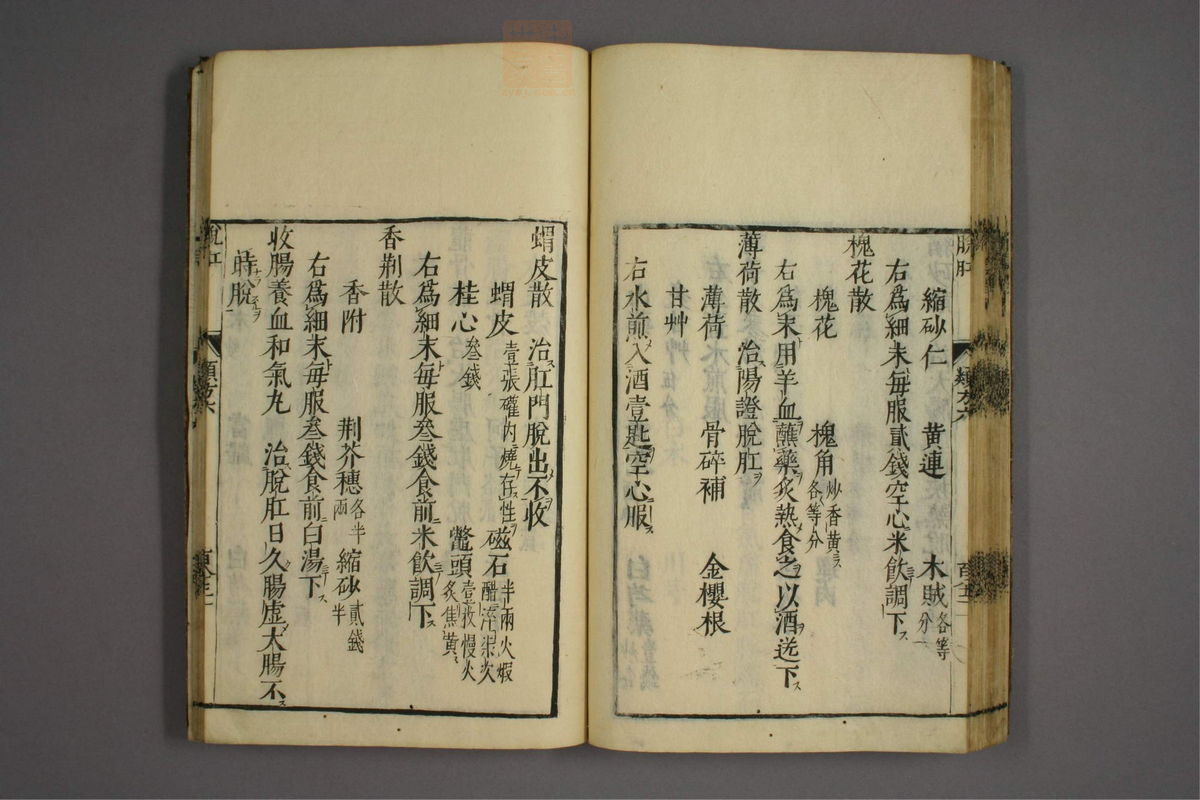 脫肛
縮砂仁　黄連　木賊各等分
右爲細末毎服貳錢空心米飲調下ス
槐花散
槐花　槐角炒香黄各等分
右爲末用羊血蘸藥炙熱食之以酒送下ス
薄荷散　治陽證脫肛
薄荷　骨碎補　金櫻根
甘艸
右水煎入酒壹匙空心服ス
蝟皮散　治肛門脫出不收
蝟皮壹張礶内燒存性　磁石半兩火煆醋淬柒次
桂心叄錢　鼈頭壹枚慢火炙焦黄
右爲細末毎服叄錢食前米飲調下ス
香荆散
香附　荆芥穗各半兩　縮砂貳錢半
右爲細末毎服叄錢食前白湯下ス
收腸養血和氣丸　治脫肛日久腸虛大腸不
時脫
脫肛
類方六